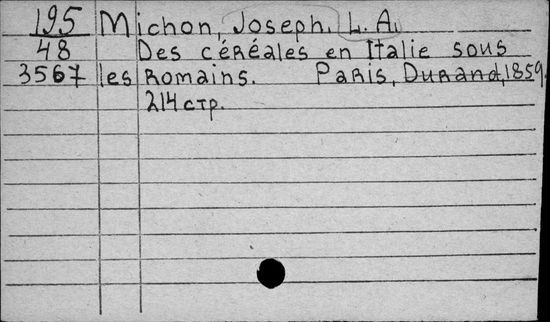 195 Michon, Joseph. L. A.
48 Des céréales en Italie sous
3567 les Romains. Paris, Durand, 1859.
214 стр.